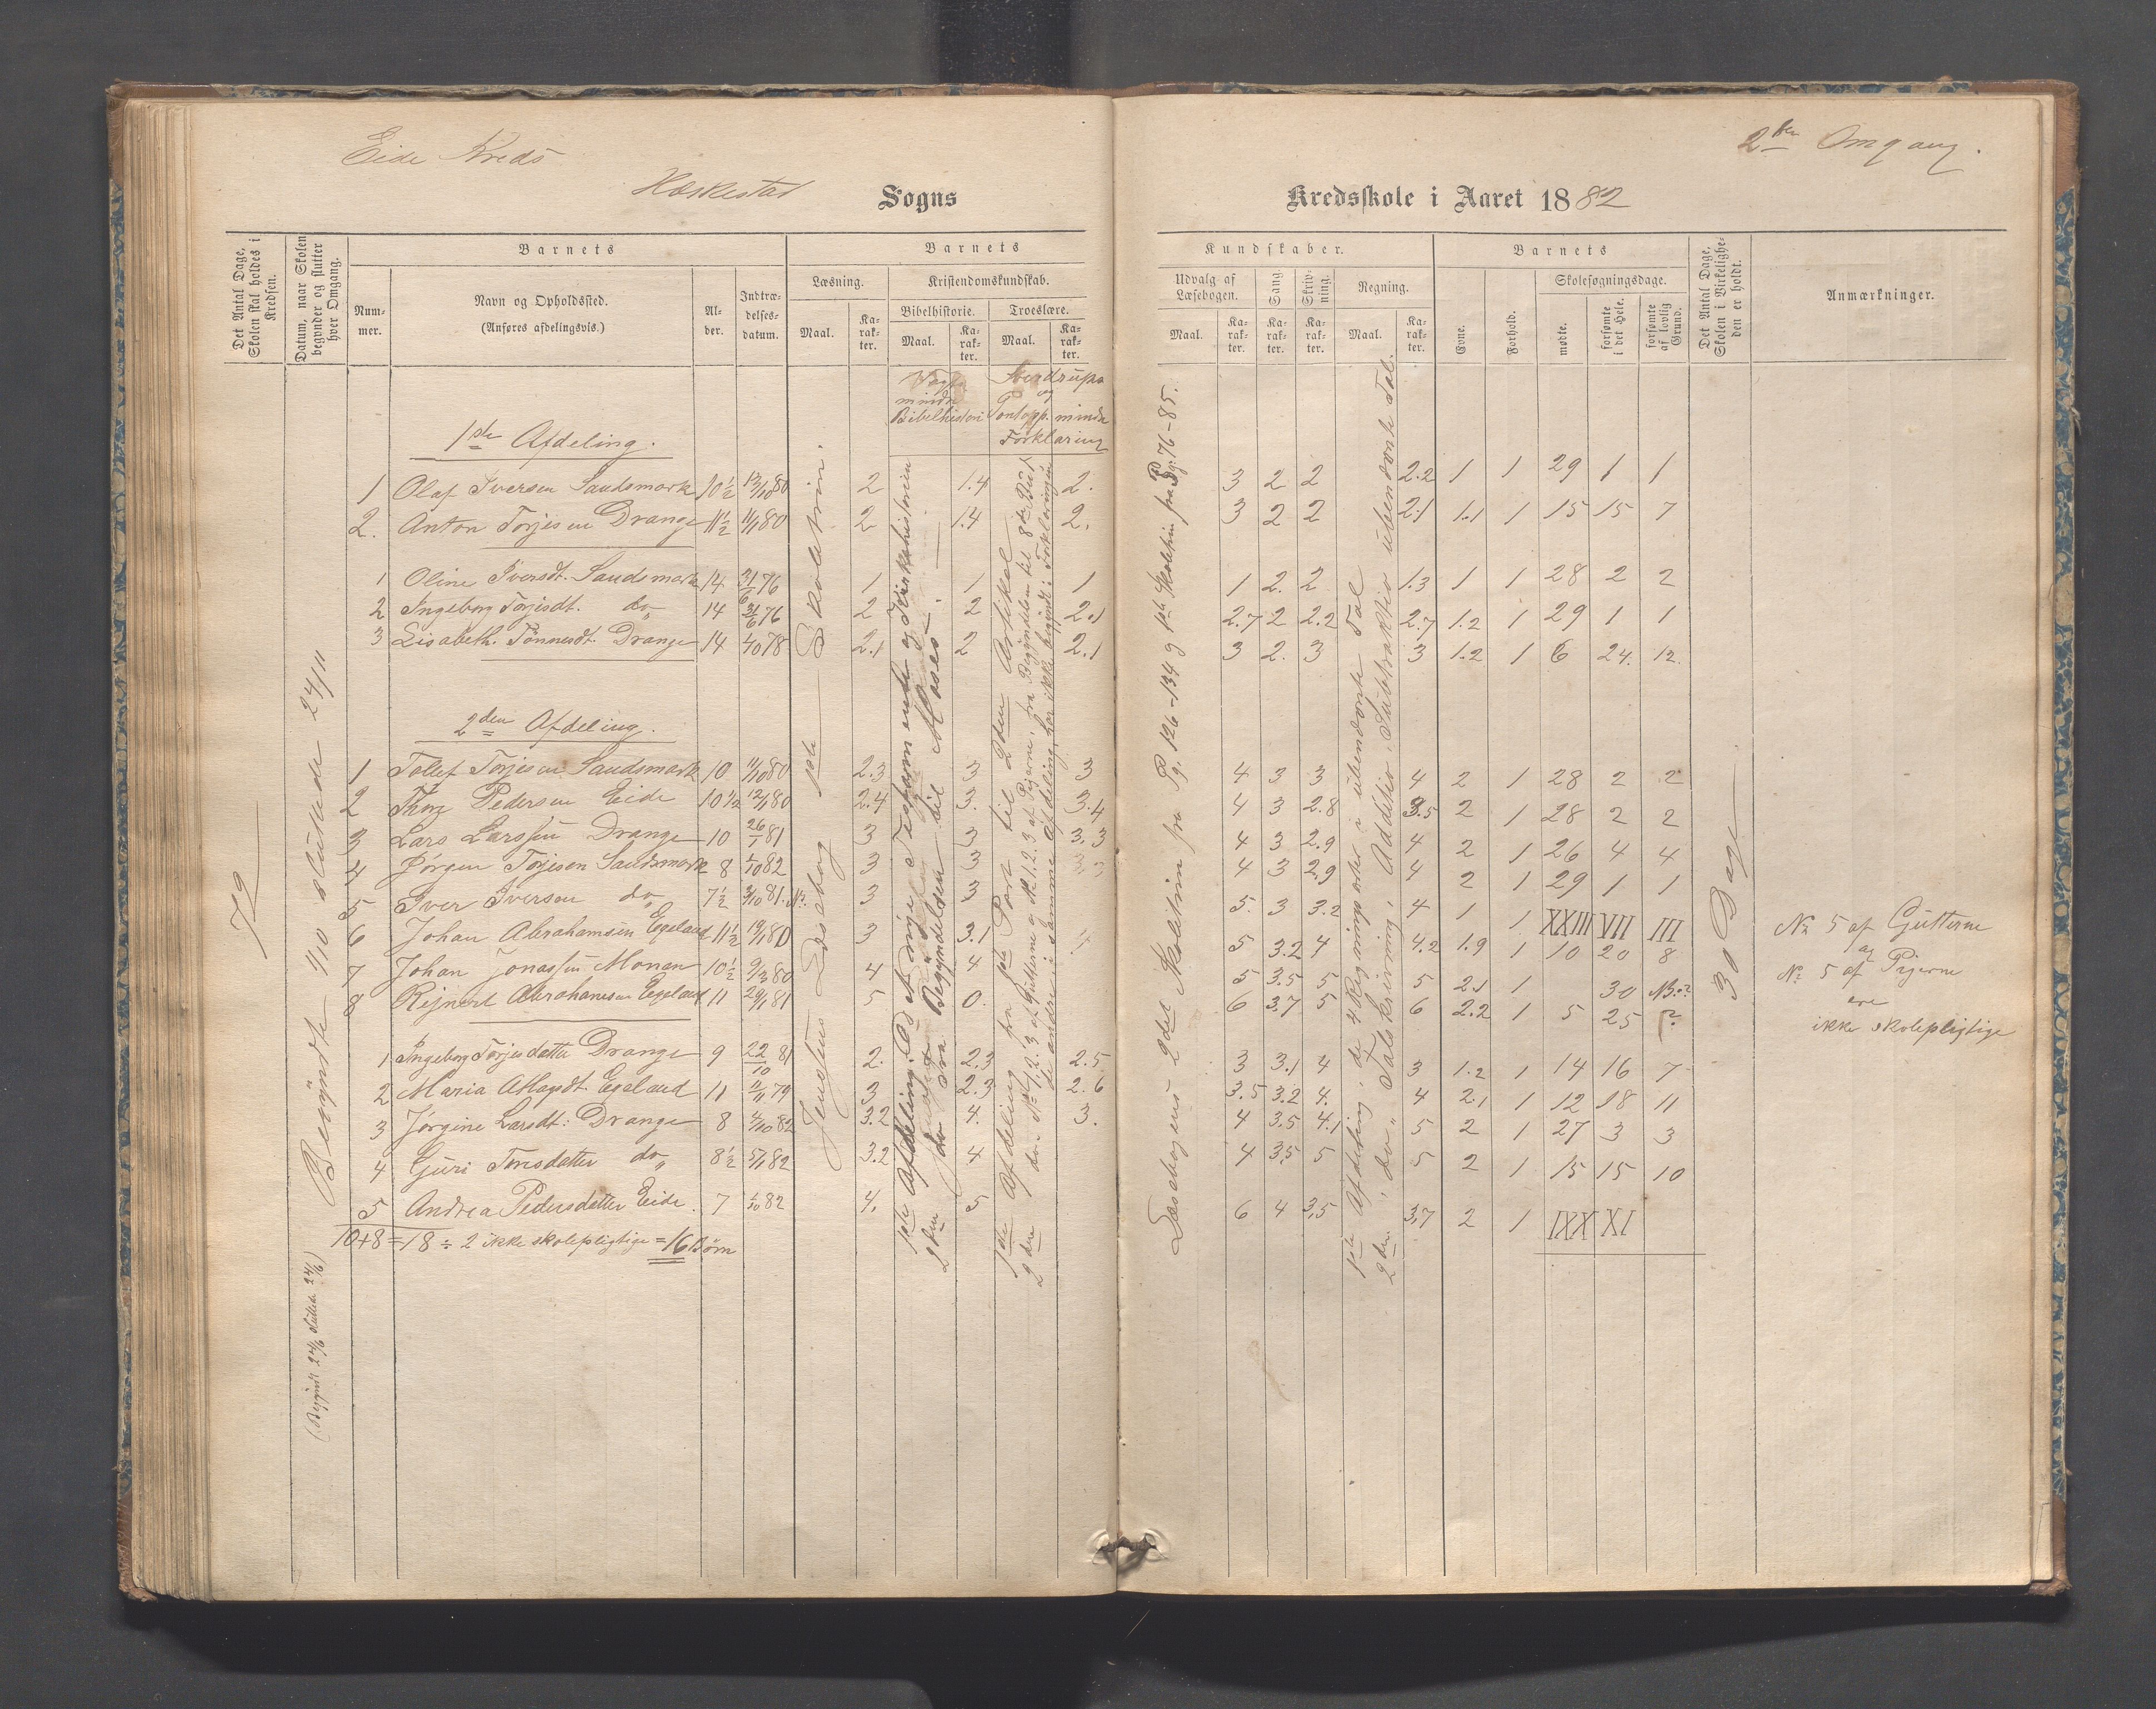 Eide Kreds
Heskestad Sogns
2den Omgang.
Kredsskole i Aaret 1882
Det Antal Dage, Skolen skal holdes i Kredsen.
Datum, naar Skolen begynder og slutter hver Omgang.
Barnets
Num-mer.
Navn og Opholdssted.
(Anføres afdelingsvis.)
Al-der.
Indtræ-delses-datum.
Barnets
Læsning.
Maal.
Ka-rak-ter.
Kristendomskundskab.
Bibelhistorie.
Maal.
Ka-rak-ter.
Troeslære.
Maal.
Ka-rak-ter.
Kundskaber.
Udvalg af Læsebogen.
Maal.
Ka-rak-ter.
Sang.
Ka-rak-ter.
Skriv-ning.
Ka-rak-ter.
Regning.
Maal.
Ka-rak-ter.
Barnets
Evne.
Forhold.
Skolesøgningsdage.
mødte.
forsømte i det Hele.
forsømte af lovlig Grund.
Det Antal Dage, Skolen i Virkelighe-den er holdt.
Anmærkninger.
Vogts mindre Bibelhistori
Sverdrups og Pontopp. mindre Forklaring
1ste Afdeling.
1 Olaf Iversen Sandsmark 10½ 13/10 80 2 1.4 2. 3 2 2 2.2 1 1 29 1 1
2. Anton Torjesen Drange 11½ 11/1 80 2 1.4 2. 3 2 2 2.1 1.1 1 15 15 7
1 Oline Iversdt. Sandsmark 14 31/6 76 1 1 1 1 2. 2 1.3 1 1 28 2 2
2 Ingeborg Torjisdt. do„ 14 76 2 2 2.1 2.7 2 2.2 2.7 1.2 1 29 1 1
3 Lisabeth. Tønnesdt. Drange 14 4/10 78 2.1 2 2.1 3 2. 3 3 1.2 1 6 24. 12.
2den Afdeling.
1 Tollef Torjesen Sandsmark 10 11/10 80 2.3 3 3 4 3 3 4 2 1 28 2 2
2 Thorz Pedersen Eide 10½ 12/1 80 2.4 3. 3.4 4 3 2.8 3.5 2 1 28 2 2
3 Lars Larssen Drange 10 26/1 81 3 3 3.3 4 3 2.9 4 2 1 26 4 4
4 Jørgen Torjesen Sandsmark 8 4/10 82 3 3 3 4 3 2.9 4 2 1 29 1 1
5 Iver Iversen do„ 7½ 3/10 81. 3 3 5. 3 3.2 4 1 1 XXIII VII III
6 Johan Abrahamsen Egeland 11½ 19/1 80 3 3.1 4 5 3.2 4 4.2 1.9 1 10 20 8
7 Johan Jonassen Monan 10½ 9/3 80 4 4 5 3.5 5 5 2.1 1 30
8 Rejnert Abrahamsen Egeland 11 29/1 81 5 0. 6 3.7 5 6 2.2 1 5 25 ?
1 Ingeborg Torjesdatter Drange 9 22/10 81 2. 2.3 2.5 3 3.1 4 3 1.2 1 14 16 7
2 Maria AMagsdt. Egeland 11 11/11 79 3 2.3 2.6 3.5 3.2 4. 4 2.1 1 12 18 11
3 Jørgine Larsdt: Drange 8 4/10 82 3.2 4. 3. 4 3.5 4.1 5 2 1 27 3 3
4 Guri Tonesdatter do„ 8½ 5/1 82 3.2 4 4 3.5 5 5 2 1 15 15 10
5 Andrea Pedersdatter Eide. 7 4/10 82 4. 5 6 4 3.5 3.7 2 1 IXX XI
10+8=18 ÷ 2 ikke skolepligtige = 16 Børn
72
Begyndte 4/10 sluttede 24/11
(Begyndt 24/6 sluttet 24/6)
Jenssens Læsebog 1ste Skoletrin.
1ste Afdeling: Det nye Testamente og Kirkehistorien
2den do fra Begyndelsen til Moses
1ste Afdeling fra 1ste Part til 2den Artikel
2den do: No 1. 2. 3 af Gutterne og No 1. 2. 3 af Pigerne, fra Begyndelsen til 8de Bud
de andre i samme Afdeling, har ikke begyndt i Forklaringen
Læsebogens 2det Skoletrin fra Pg. 126-134 og 1ste Skoletrin fra Pg. 76-85.
1ste Afdeling, de 4 Regningsarter i ubenævnte Tal
2den „ do„ Talskrivning, Addition, Subtraktion i ubenævnte Tal.
30 Dage
No 5 af Gutterne
og
No 5 af Pigerne
ere
ikke skolepligtige